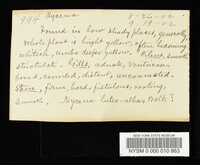 944 Mycena 8-26-02.
9-19-02
Found in low shady places, generally,
whole plant is bright yellow, often becoming
whitish, umbo deeper yellow. Pileus, smooth
striatulate. Gills, adnate, ventricose
broad, rounded, distant, unconnected.
Stem, firm, hard, fistulous, rooting,
smooth. Mycena luteo-albus Bolt?
NEW YORK STATE MUSEUM
NYSM G 000 010 863